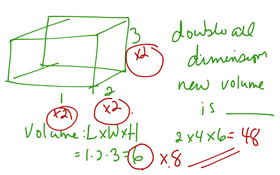 3
×2
1
2
×2
×2
Volume: L×W×H
= 1·2·3 = 6 ×8
double all
dimension
new volume
is ____
2×4×6 = 48